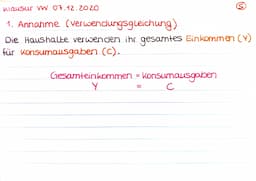 Klausur VW 07.12.2020
5
1. Annahme (Verwendungsgleichung)
Die Haushalte verwenden ihr gesamtes Einkommen (Y)
für Konsumausgaben (C).
Gesamteinkommen = Konsumausgaben
Y = C